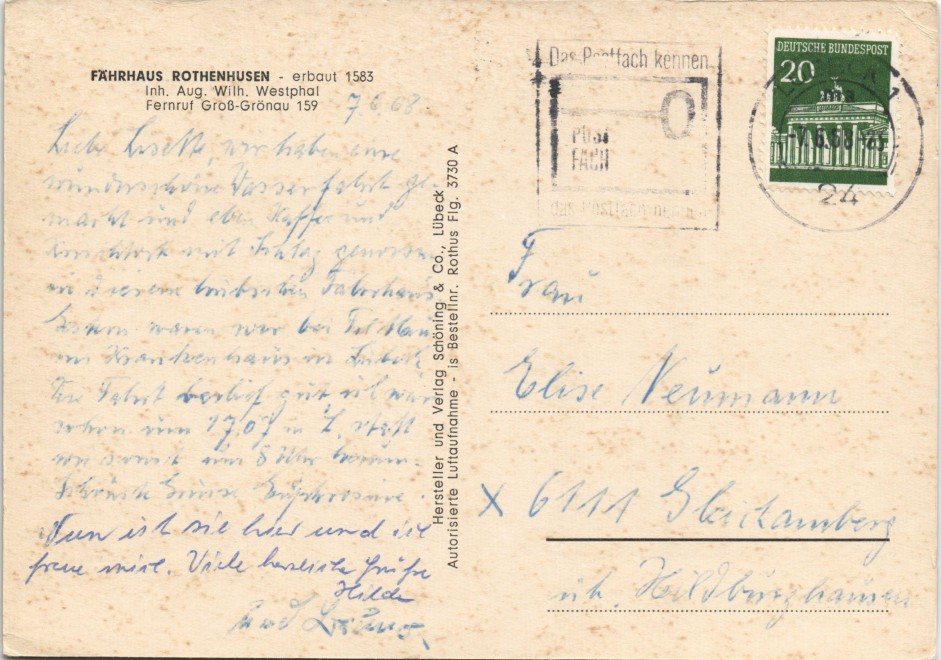 FÄHRHAUS ROTHENHUSEN - erbaut 1583
Inh. Aug. Wilh. Westphal
Fernruf Groß-Grönau 159
7.6.68.
Liebe Lisette, wir haben eine
wunderschöne Wasserfahrt ge-
macht und eben Kaffee und
mit Schlag genossen
in diesem hübschen Fährhaus
Gestern waren wir bei
im Krankenhaus in Lübeck
Die Fahrt verlief gut ich war
schon um 17.07 in L. statt
wie sonst um 8 Uhr
Grüsse Euphrosine.
Nun ist sie hier und ich
freue mich. Viele herzliche Grüße
Hilde
und
Hersteller und Verlag Schöning & Co., Lübeck
Autorisierte Luftaufnahme - is Bestellnr. Rothus Flg. 3730 A
Das Postfach kennen
POST
FACH
das Postfach nennen
DEUTSCHE BUNDESPOST
20
LÜBECK 1
-7.6.68
24
Frau
Elise Neumann
x 6111 Gleichamberg
üb. Hildburghausen